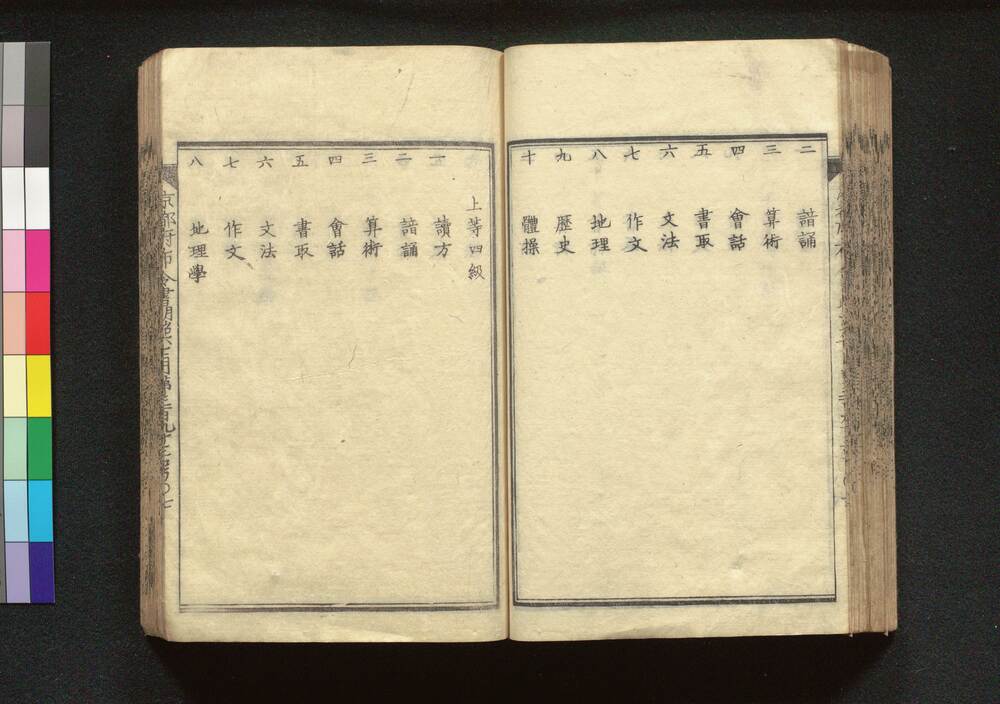 二 諳誦
三 算術
四 會話
五 書取
六 文法
七 作文
八 地理
九 歴史
十 體操
上等四級
一 讀方
二 諳誦
三 算術
四 會話
五 書取
六 文法
七 作文
八 地理學
京都府布令書明治六年一月第三百九十三号〇七